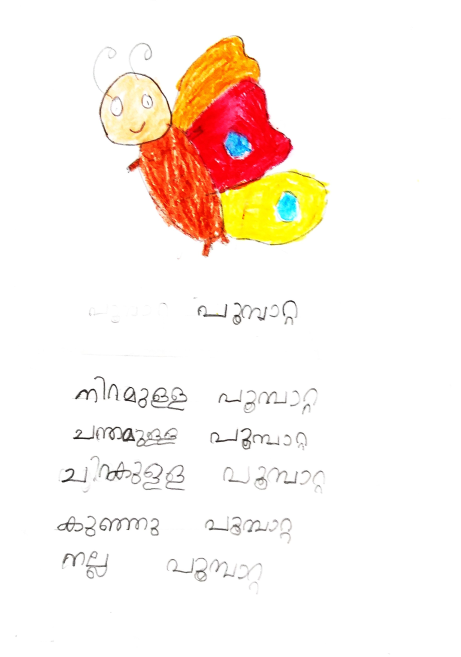 പൂമ്പാറ്റ
നിറമുള്ള പൂമ്പാറ്റ
ചന്തമുള്ള പൂമ്പാറ്റ
ചിറകുള്ള പൂമ്പാറ്റ
കുഞ്ഞു പൂമ്പാറ്റ
നല്ല പൂമ്പാറ്റ